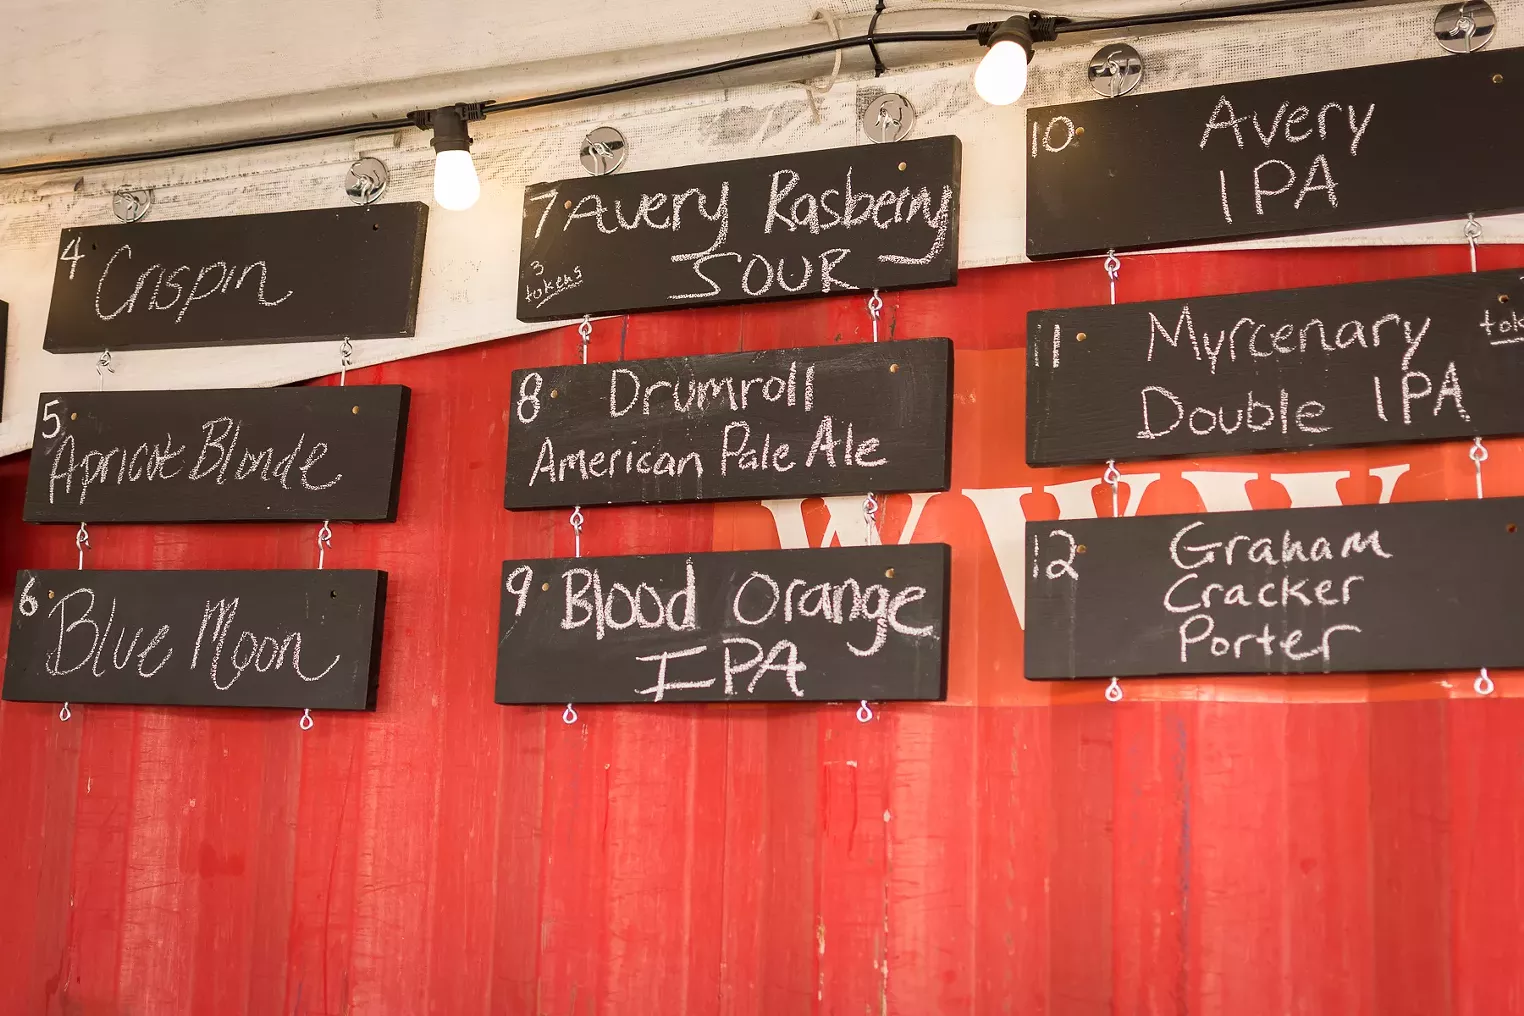 4
Crispin
5
Apricot Blonde
6
Blue Moon
7 Avery Rasberry
SOUR
3
tokens
8 Drumroll
American Pale Ale
9 Blood Orange
IPA
10 Avery
IPA
11 Myrcenary
Double IPA
12 Graham
Cracker
Porter
WWW